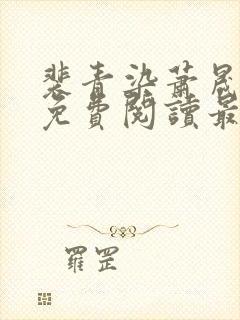 裴青染蕭晟
免費閱讀最
羅罡